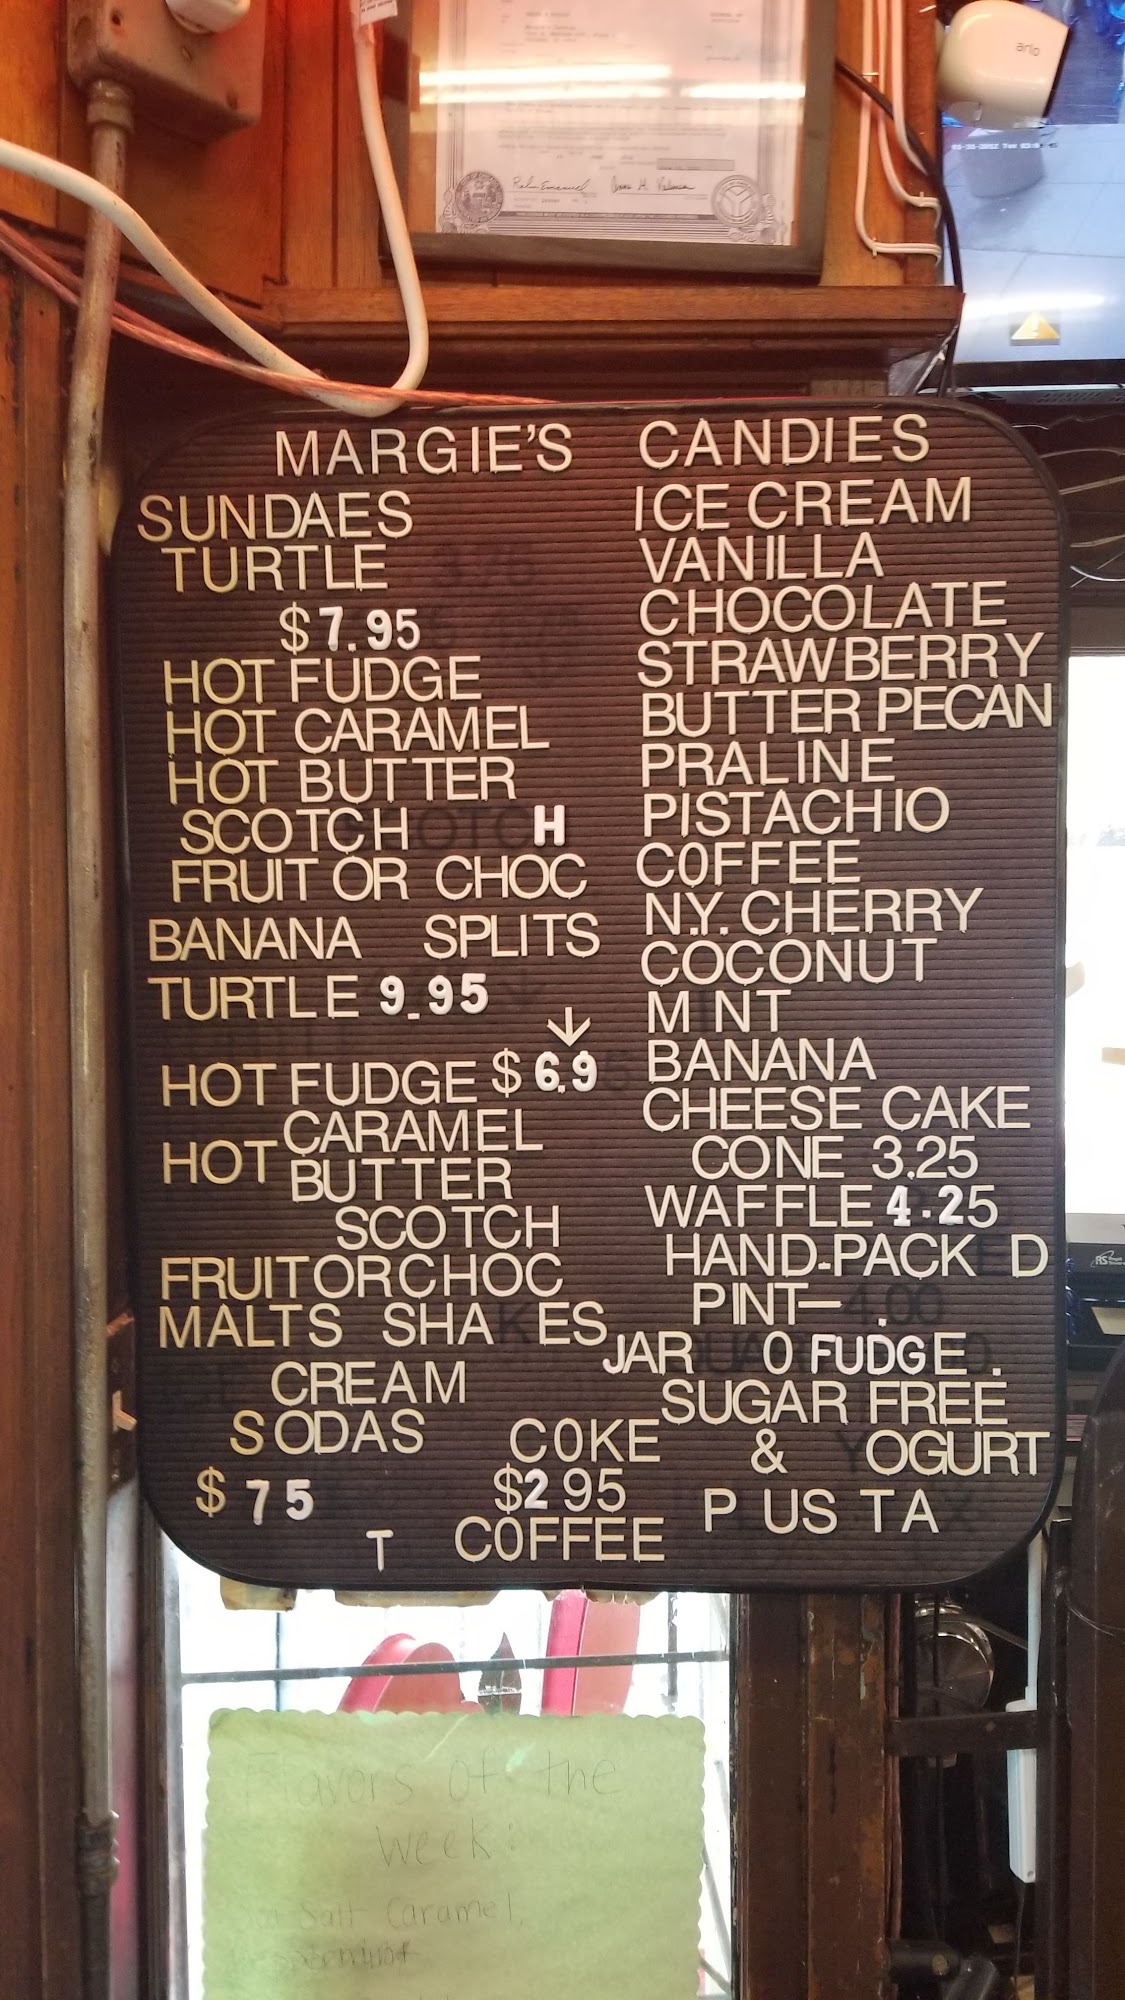 arlo
MARGIE'S CANDIES
SUNDAES
TURTLE
$7.95
HOT FUDGE
HOT CARAMEL
HOT BUTTER
SCOTCH H
FRUIT OR CHOC
BANANA SPLITS
TURTLE 9.95
↓
HOT FUDGE $6.9
CARAMEL
HOT
BUTTER
SCOTCH
FRUIT OR CHOC
MALTS SHAKES
CREAM
SODAS
$ 75
T
COKE
$2 95
COFFEE
ICE CREAM
VANILLA
CHOCOLATE
STRAWBERRY
BUTTER PECAN
PRALINE
PISTACHIO
COFFEE
N.Y. CHERRY
COCONUT
M NT
BANANA
CHEESE CAKE
CONE 3.25
WAFFLE 4.25
HAND-PACK D
PINT— .
JAR O FUDGE .
SUGAR FREE
& YOGURT
P US TA
Flavors of the
Week:
Salt Caramel,